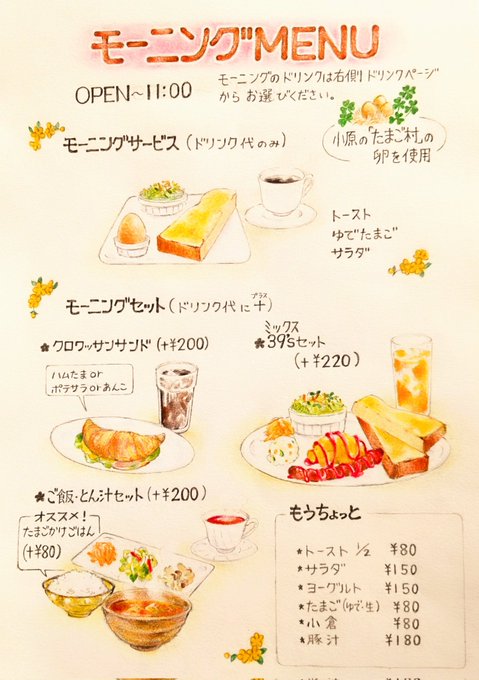 モーニングMENU
OPEN~11:00
モーニングのドリンクは右側ドリンクページ
からお選びください。
小原の「たまご村」の
卵を使用
モーニングサービス(ドリンク代のみ)
トースト
ゆでたまご
サラダ
モーニングセット(ドリンク代に+)
プラス
*クロワッサンサンド(+¥200)
ハムたまor
ポテサラorあんこ
ミックス
*39'sセット
(+¥220)
*ご飯・とん汁セット(+¥200)
オススメ!
たまごかけごはん
(+¥80)
もうちょっと
*トースト 1/2 ¥80
*サラダ ¥150
*ヨーグルト ¥150
*たまご(ゆで・生) ¥80
*小倉 ¥80
*豚汁 ¥180